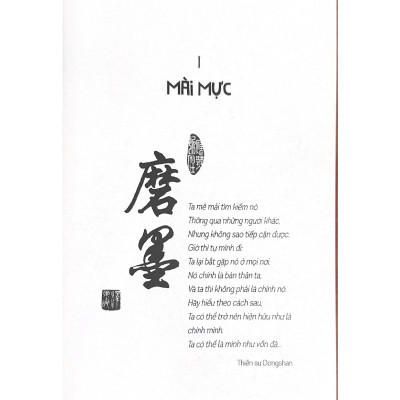 I
MÀI MỰC
磨
墨
Ta mê mải tìm kiếm nó
Thông qua những người khác,
Nhưng không sao tiếp cận được.
Giờ thì tự mình đi;
Ta lại bắt gặp nó ở mọi nơi.
Nó chính là bản thân ta,
Và ta thì không phải là chính nó.
Hãy hiểu theo cách sau,
Ta có thể trở nên hiện hữu như là
chính mình.
Ta có thể là mình như vốn đã...
Thiền sư Dongshan